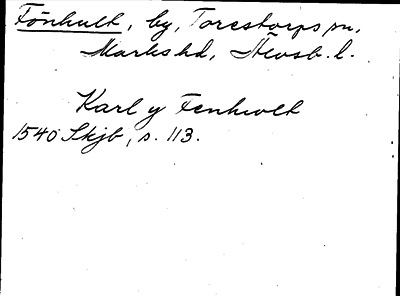 Fönhult, by, Torestorps sn,
Marks hd, Älvsb. l.
Karl y Fenhwlt
1540 Skjb, s. 113.